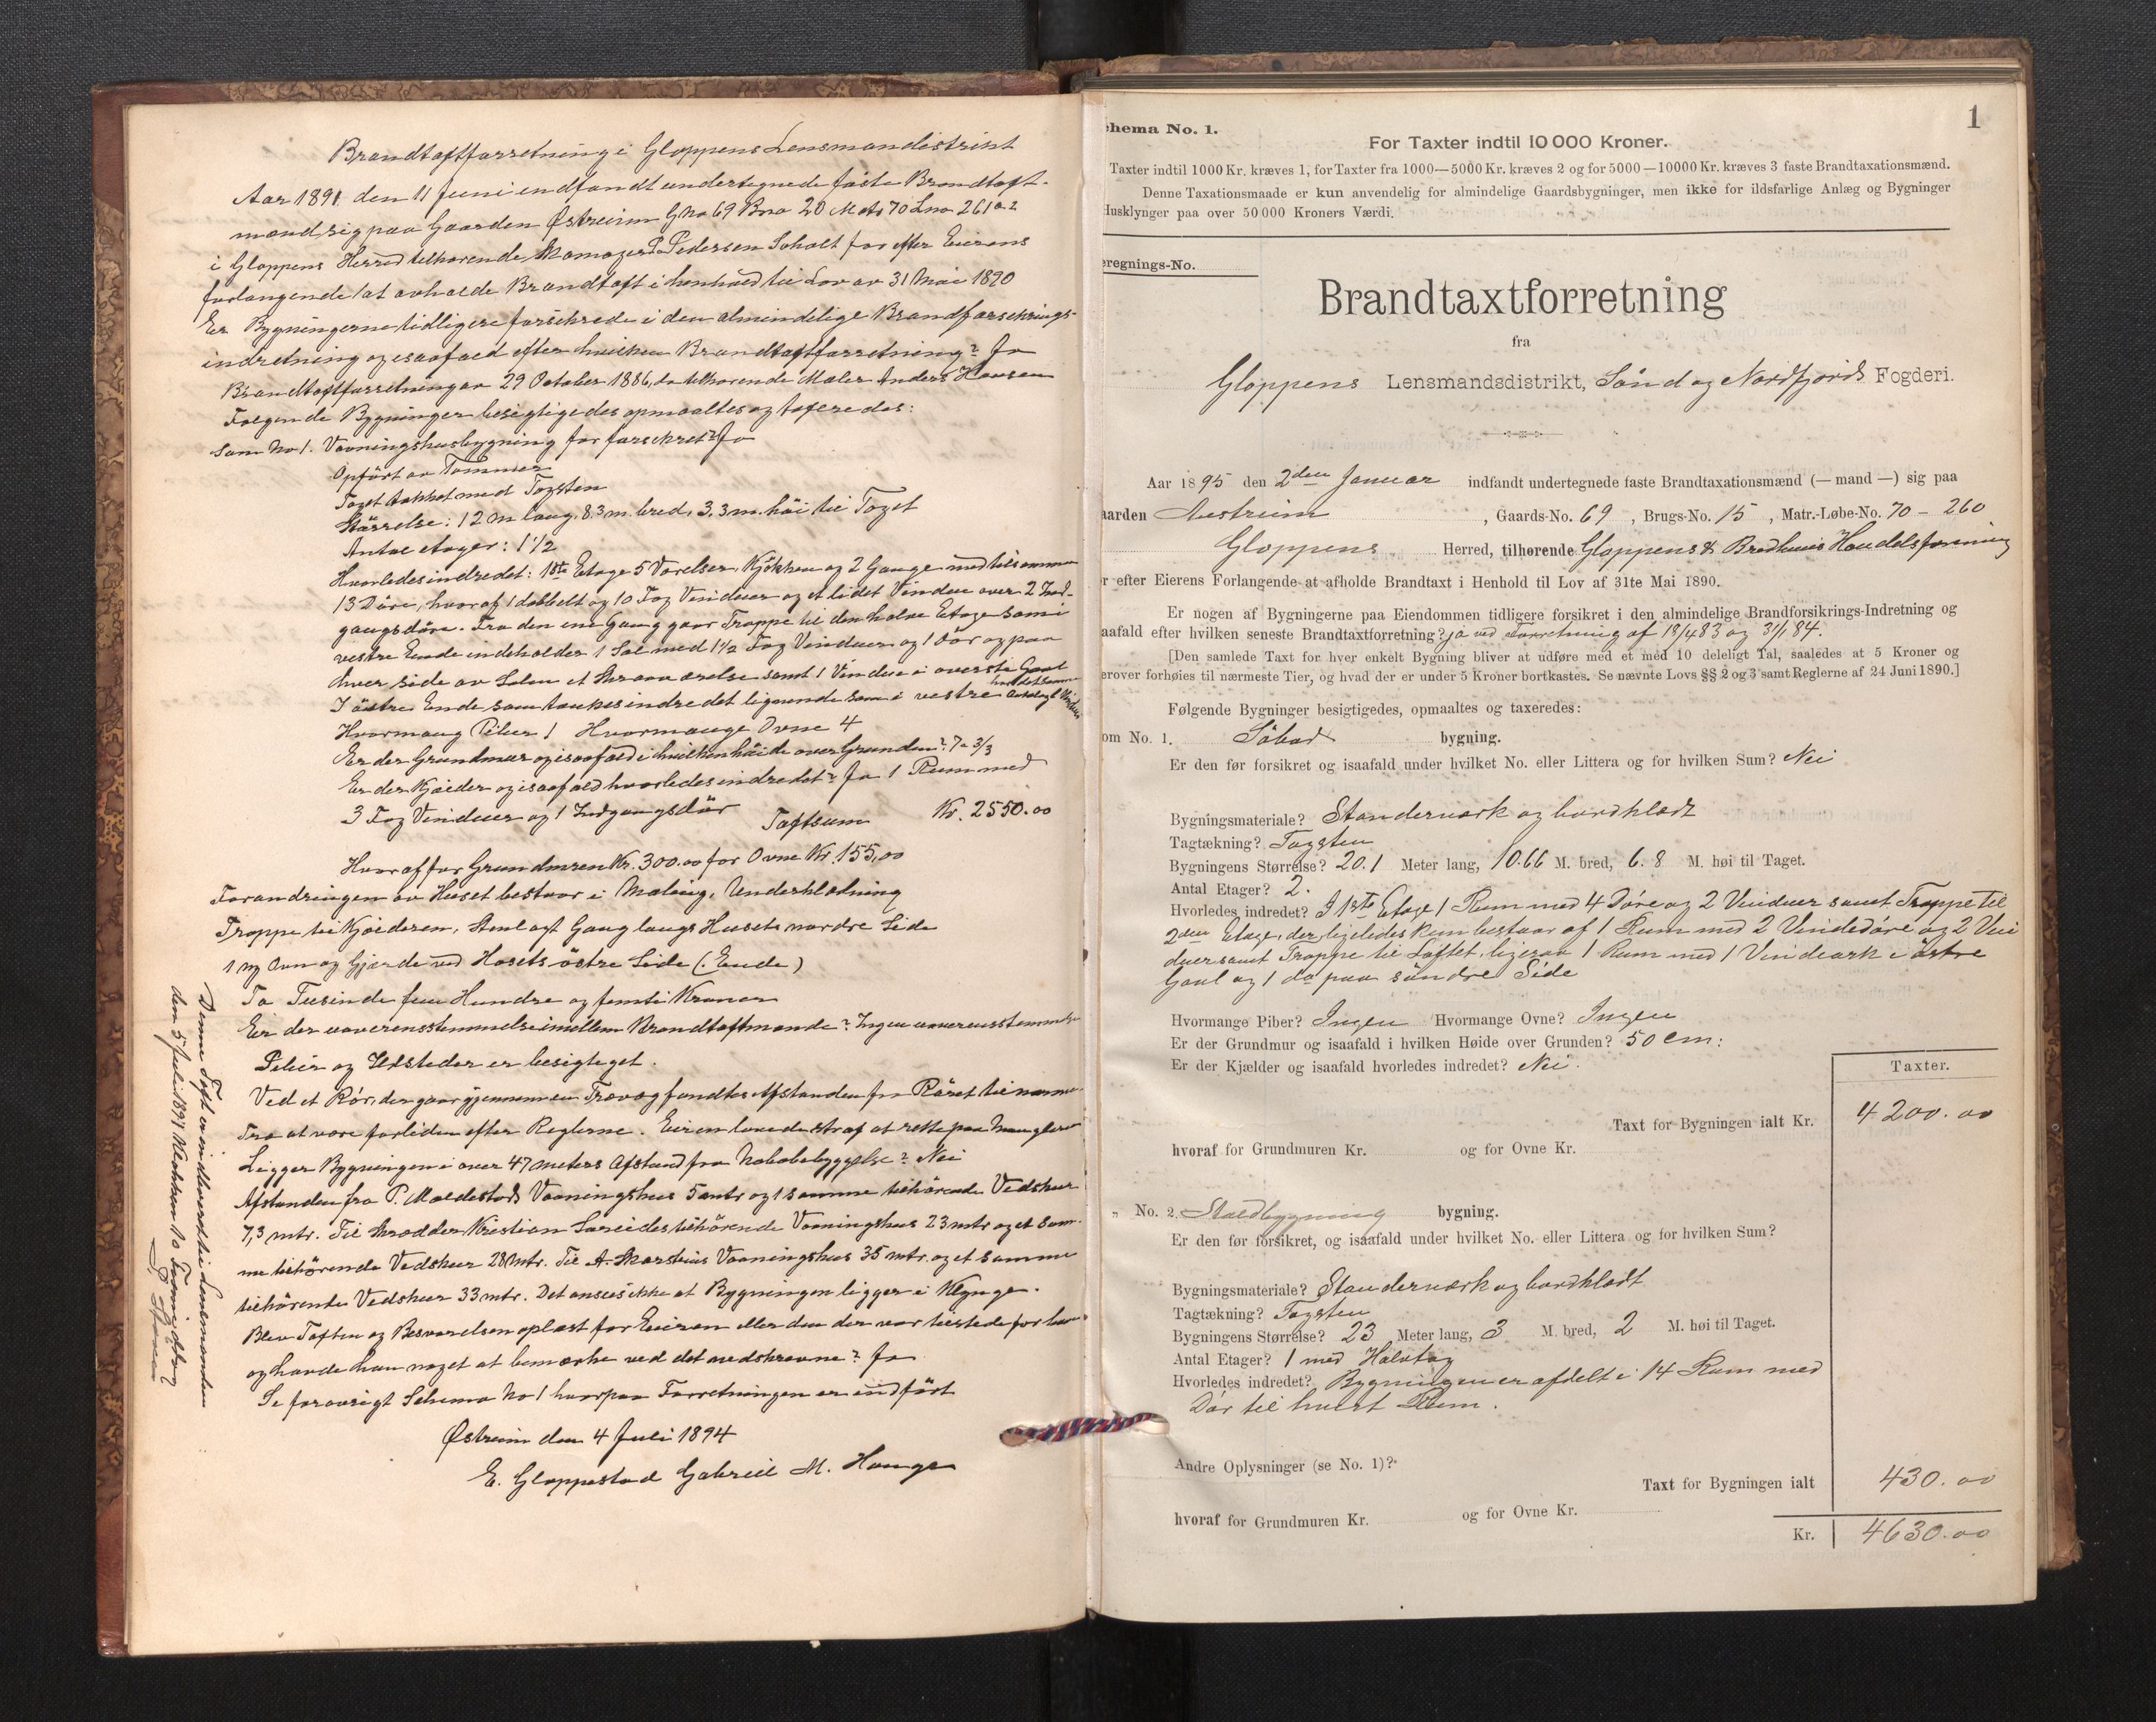 Brandtaxtforretning i Gloppens Lensmandistrikt
Aar 1891 den 11 Juni indfandt undertegnede faste Brandtaxt-
mænd sig paa Gaarden Østreim Gno 69 Bno 20 Matr 70 Lno 261 a 2
i Gloppens Herred tilhørende Skomager P. Pedersen Soholt for efter Eierens
forlangende at avholde Brandtaxt i henhold til Lov av 31 Mai 1890
Er Bygningerne tidligere forsikrede i den almindelige Brandforsikrings-
indretning og isaafald efter hvilken Brandtaxtforretning? Ja
Brandtaxtforretning av 29 October 1886, da tilhørende Maler Anders Hansen
Følgende Bygninger besigtigedes opmaaltes og taxeredes:
Som No 1. Vaaningshusbygning før forsikret? Ja
Opført av Tømmer
Taget tækket med Tagsten
Størrelse: 12 m lang, 8,3 m. bred, 3,3 m. høi til Taget
Antal etager: 1 1/2
Hvorledes indredet: 1ste Etage 5 Værelser, Kjøkken og 2 Gange med tilsammen
13 Døre, hvoraf 1 dobbelt og 10 Fag Vinduer og et lidet Vindue over 2 Ind-
gangsdøre. Fra den ene Gang gaar Trappe til den halve Etage som i
vestre Ende indeholder 1 Sal med 1 1/2 Fag Vinduer og 1 Dør og paa
hver side av Salen et Skraaværelse samt 1 Vindue i øverste Gavl
I østre Ende som tænkes indredet lignende som i vestre
Hvormang Piber 1 Hvormange Ovne 4
Er der Grundmur og isaafald i hvilken høide over Grunden? Ja 3/3
Er der Kjælder og isaafald hvorledes indredet? Ja 1 Rum med
3 Fag Vinduer og 1 Indgangsdør Taxtsum Kr. 2550.00
Hvoraf for Grundmuren Kr. 300.00 for Ovne Kr. 155,00
Forandringen av Huset bestaar i Maling, Underklædning
Trappe til Kjælderen, Gang langs Husets nordre Side
1 ny Ovn og Gjærde ved Husets østre Side (: Ende)
To Tusinde fem Hundre og femti Kroner
Er der uoverensstemmelse imellem Brandtaxtmænde? Ingen uoverensstemmelse
Piber og Ildsteder er besigtiget.
Ved et Rør, der gaar gjennem en Trævæg fandtes Afstanden fra Røret til nærmeste
Træ at være for liden efter Reglerne. Eieren lovede straf at rette paa Mangleren
Ligger Bygningen i over 47 meters Afstand fra Nabobebyggelse? Nei
Afstanden fra P. Mældestads Vaaningshus 5 mtr og 1 samme tilhørende Vedskur
7,3 mtr. Til Skrædder Kristian Sareides tilhørende Vaaningshus 23 mtr og et sam-
me tilhørende Vedskur 28 mtr. Til A. Skarsteins Vaaningshus 35 mtr. og et samme
tilhørende Vedskur 33 mtr. Det ansees ikke at Bygningen ligger i Klynge.
Blev Taxten og Besvarelsen oplæst for Eieren eller den der var tilstede for ham
og havde han noget at bemærke ved det nedskrevne? Ja
Se forøvrigt Schema No 1 hvorpaa Forretningen er indført
Østreim den 4 Juli 1894
E. Gloppestad Gabriel M. Hauge
Denne Taxt er indleveret til Lensmanden
den 5 Juli 1894
1
chema No. 1.
For Taxter indtil 10 000 Kroner.
Taxter indtil 1000 Kr. kræves 1, for Taxter fra 1000—5000 Kr. kræves 2 og for 5000—10000 Kr. kræves 3 faste Brandtaxationsmænd.
Denne Taxationsmaade er kun anvendelig for almindelige Gaardsbygninger, men ikke for ildsfarlige Anlæg og Bygninger
Husklynger paa over 50 000 Kroners Værdi.
eregnings-No.
Brandtaxtforretning
fra
Gloppens Lensmandsdistrikt, Sönd og Nordfjords Fogderi.
Aar 1895 den 2den Januar indfandt undertegnede faste Brandtaxationsmænd (— mand —) sig paa
aarden Austreim, Gaards-No. 69, Brugs-No. 15, Matr.-Løbe-No. 70 - 260
Gloppens Herred, tilhørende Gloppens & Bredheims Handelsforening
r efter Eierens Forlangende at afholde Brandtaxt i Henhold til Lov af 31te Mai 1890.
Er nogen af Bygningerne paa Eiendommen tidligere forsikret i den almindelige Brandforsikrings-Indretning og
aafald efter hvilken seneste Brandtaxtforretning? ja ved Forretning af 18/4 83 og 31/1 84.
[Den samlede Taxt for hver enkelt Bygning bliver at udføre med et med 10 deleligt Tal, saaledes at 5 Kroner og
erover forhøies til nærmeste Tier, og hvad der er under 5 Kroner bortkastes. Se nævnte Lovs §§ 2 og 3 samt Reglerne af 24 Juni 1890.]
Følgende Bygninger besigtigedes, opmaaltes og taxeredes:
om No. 1. Söbod bygning.
Er den før forsikret og isaafald under hvilket No. eller Littera og for hvilken Sum? Nei
Bygningsmateriale? Standerværk og bordklædt
Tagtækning? Tagsten
Bygningens Størrelse? 20.1 Meter lang, 10.66 M. bred, 6.8 M. høi til Taget.
Antal Etager? 2.
Hvorledes indredet? I 1ste Etage 1 Rum med 4 Døre og 2 Vinduer samt Trappe til
2den Etage, der ligeledes kun bestaar af 1 Rum med 2 Vindedøre og 2 Vin
duer samt Trappe til Loftet, ligesaa 1 Rum med 1 Vindeark i østre
Gavl og 1 do paa søndre Side
Hvormange Piber? Ingen Hvormange Ovne? Ingen
Er der Grundmur og isaafald i hvilken Høide over Grunden? 50 cm:
Er der Kjælder og isaafald hvorledes indredet? Nei.
Taxter.
Taxt for Bygningen ialt Kr. 4200.00
hvoraf for Grundmuren Kr. og for Ovne Kr.
„ No. 2. Staldbygning bygning.
Er den før forsikret, og isaafald under hvilket No. eller Littera og for hvilken Sum?
Bygningsmateriale? Standerværk og bordklædt
Tagtækning? Tagsten
Bygningens Størrelse? 23 Meter lang, 3 M. bred, 2 M. høi til Taget.
Antal Etager? 1 med Halvtag
Hvorledes indredet? Bygningen er afdelt i 14 Rum med
Dør til hvert Rum.
Andre Oplysninger (se No. 1)?
Taxt for Bygningen ialt 430.00
hvoraf for Grundmuren Kr. og for Ovne Kr.
Kr. 4630.00